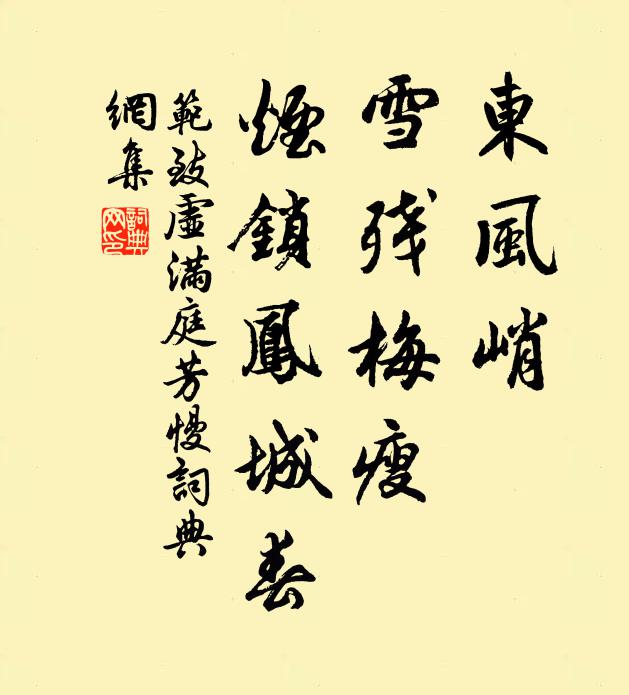 東風峭
雪残梅瘦
煙鎖鳳城春
範致虛滿庭芳慢詞典
網集
詞典
网印